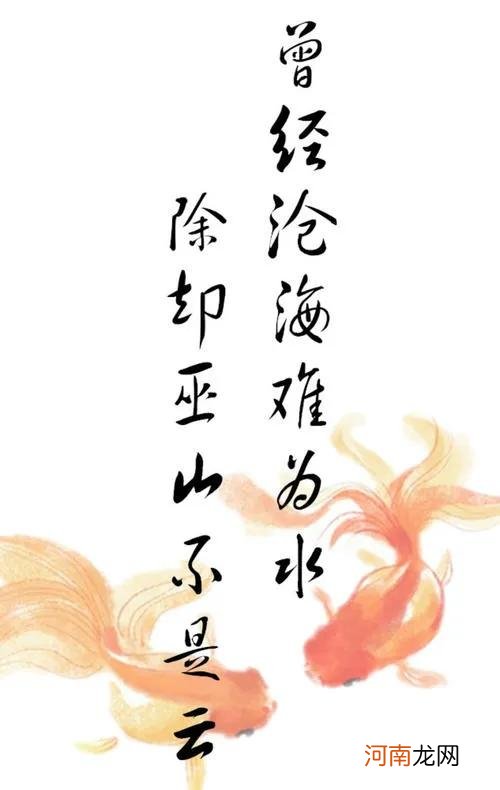 曾经沧海难为水
除却巫山不是云
河南龙网